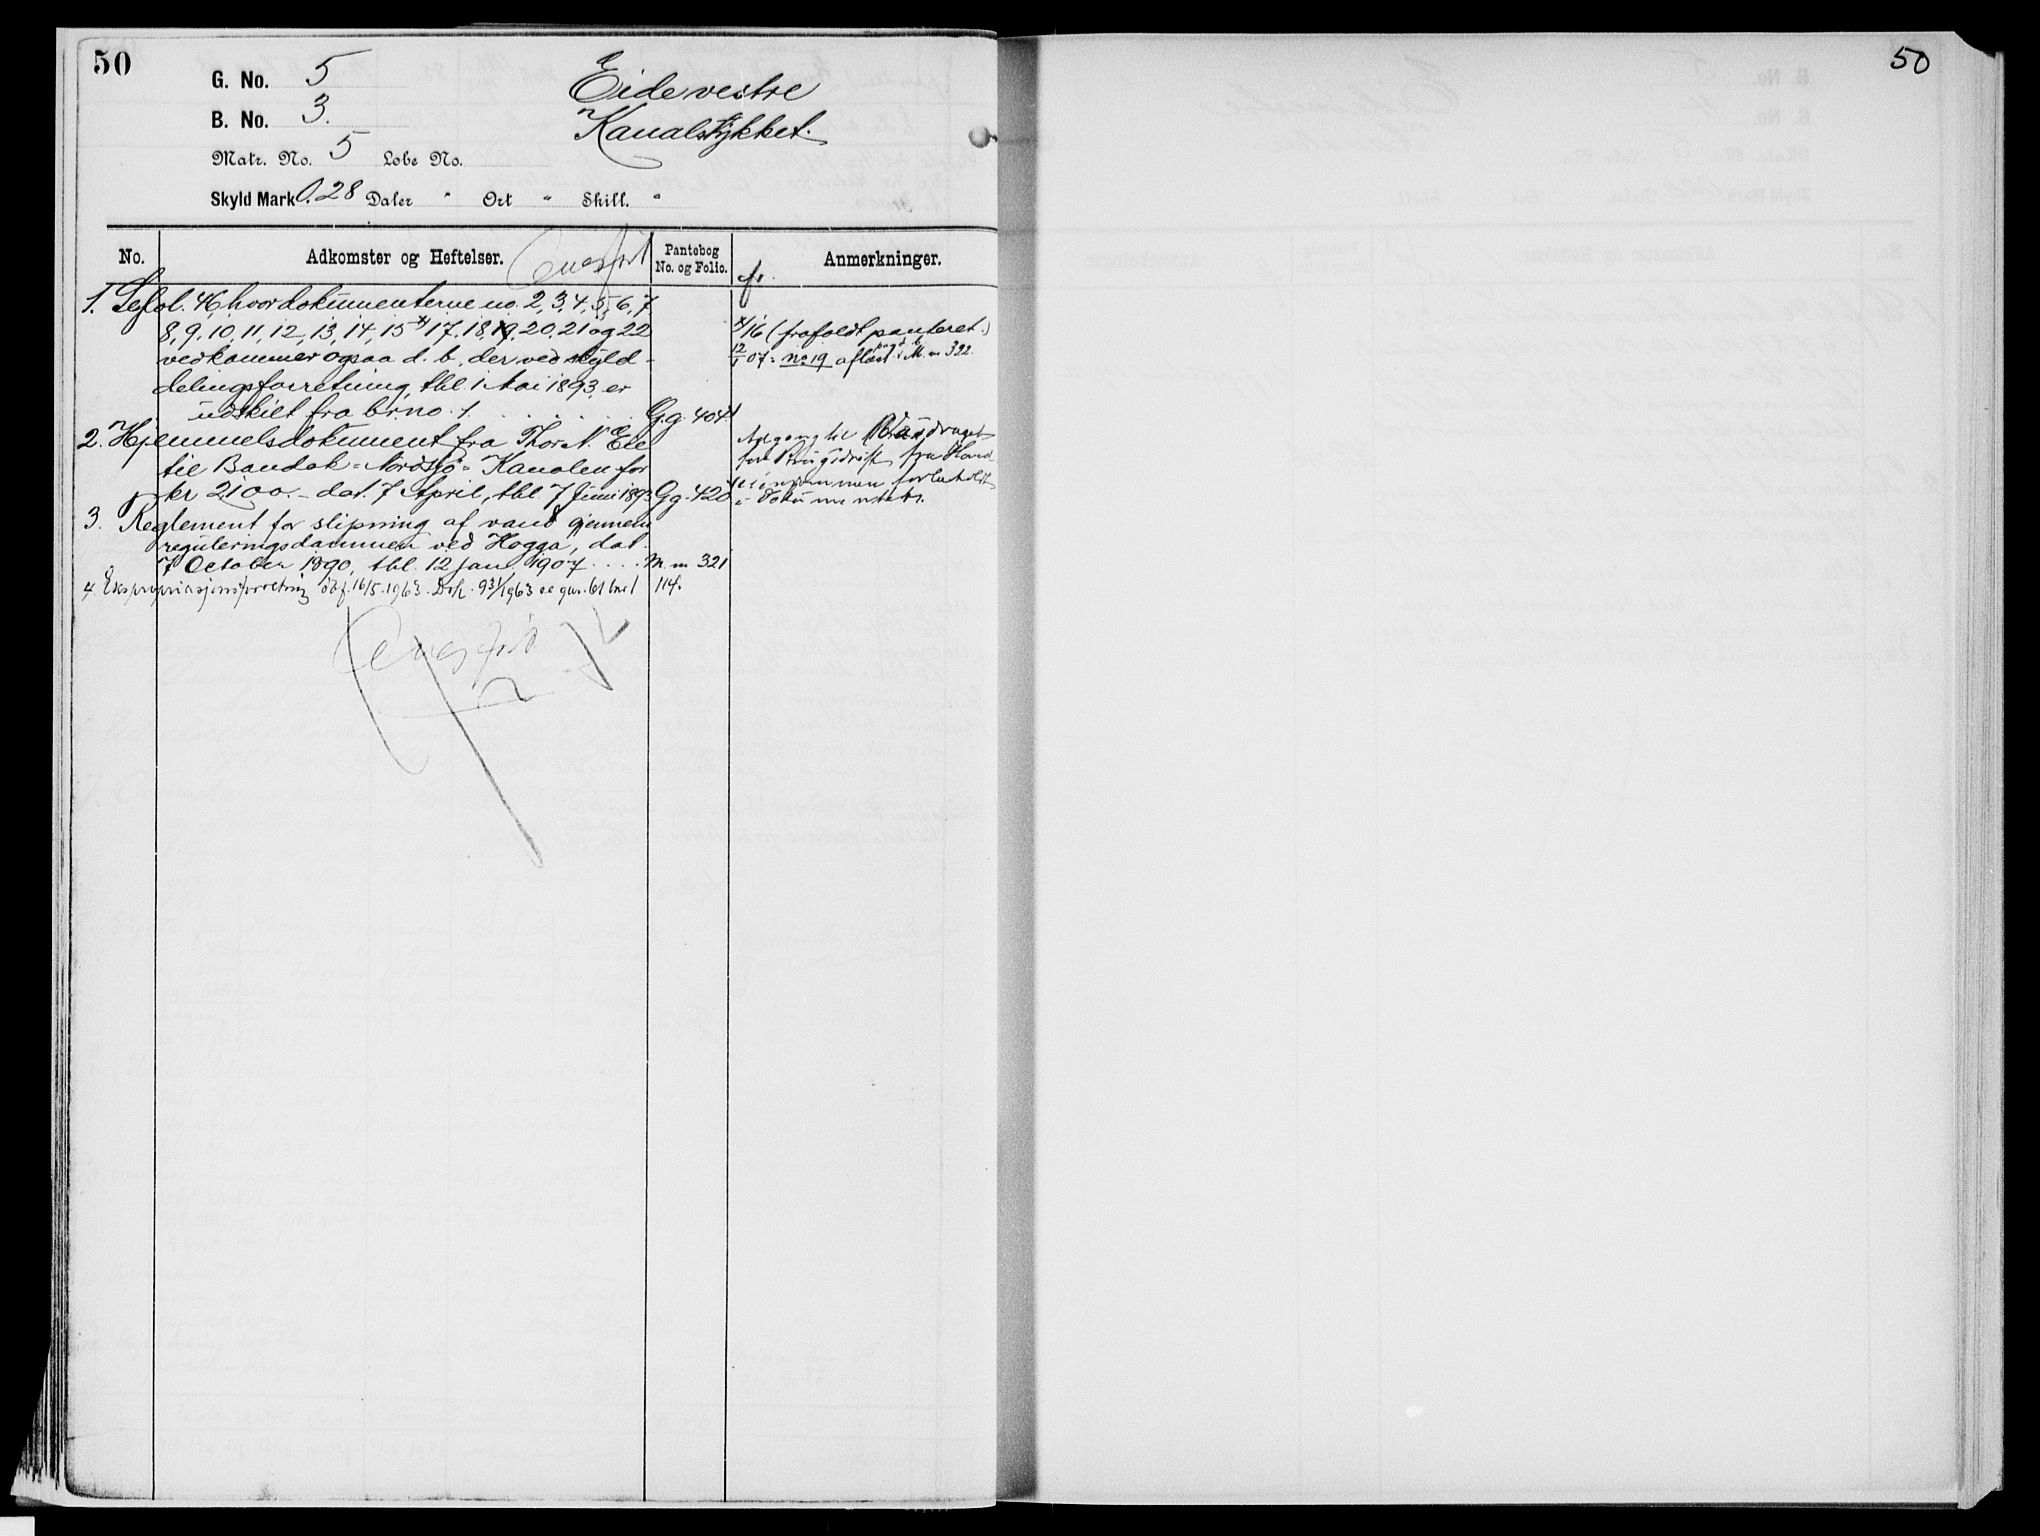 50
G. No. 5
B. No. 3.
Matr. No. 5 Løbe No.
Skyld Mark 0.28 Daler " Ort " Skill. "
Eide vestre
Kanalstykket.
No. Adkomster og Heftelser. Pantebog No. og Folio. Anmerkninger.
1. Se fol. 46, hvor dokumenterne no. 2, 3, 4, 5, 6, 7
8, 9, 10, 11, 12, 13, 14, 15 x) 17, 18, 19, 20, 21 og 22
vedkommer ogsaa d. b., der ved skyld-
delingsforretning, thl. 1 Mai 1893, er
udskilt fra br no. 1. G.g. 404
x/16 (frafaldt panteret.)
12/1 07: no 19 aflæst M. m 322.
2. Hjemmelsdokument fra Thor N. Eie
til Bandak-Nordsjø-Kanalen for
kr 2100.- dat. 7 April, thl. 7 Juni 1893 G.g. 420
Adgang til
for Brugsdrift fra
i Dokumentet.
3. Reglement for slipning af vand gjennem
reguleringsdammen ved Hogga, dat.
7 October 1890, thl. 12 Jan. 1907 .... M. m 321
4. Ekspropriasjonsforretning 16/5.1963. Dok. 931/1963 se gnr. 61 bnr 1
114.
50